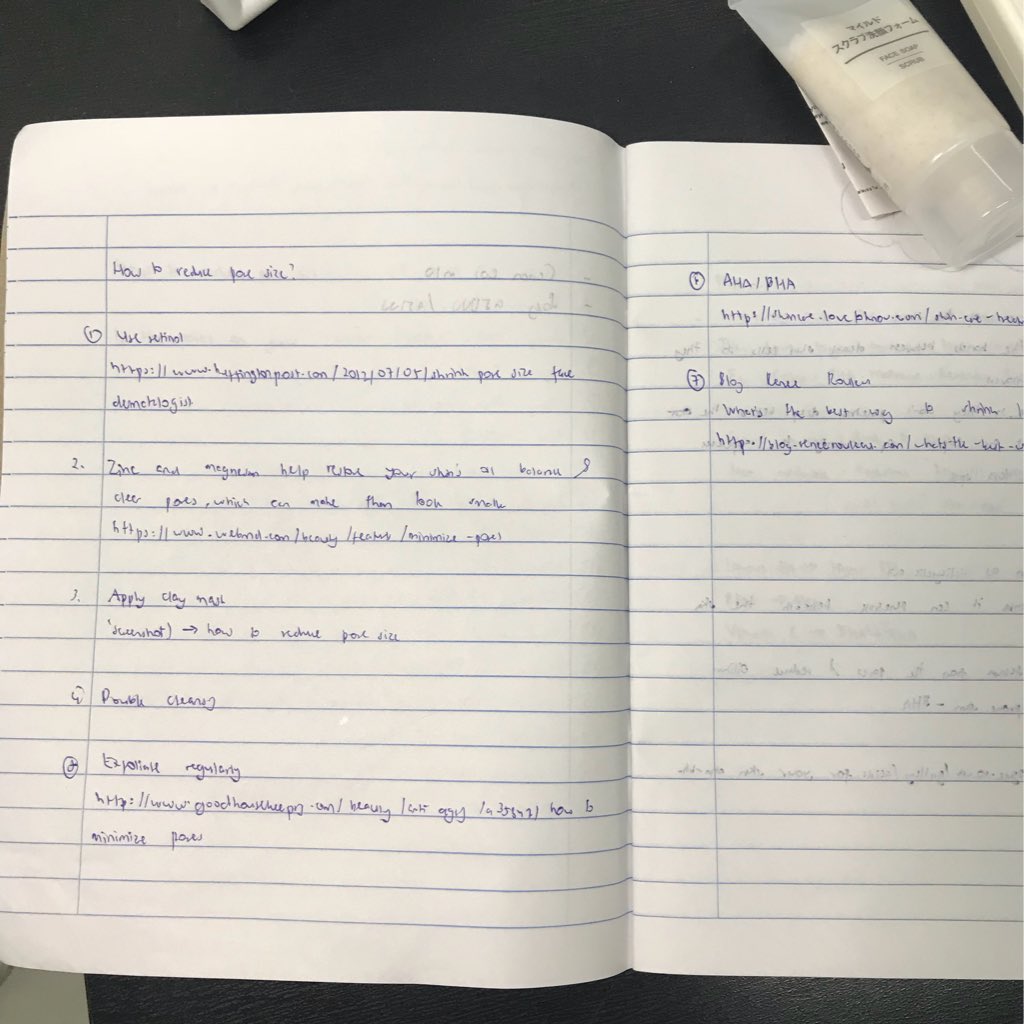 How to reduce pore size?
① Use retinol
https://www.huffingtonpost.com/2012/07/05/shrink pore size face
dermatologist
2. Zinc and magnesium help restore your skin's oil balance &
clear pores, which can make them look smaller
https://www.webmd.com/beauty/features/minimize-pores
3. Apply clay mask
(screenshot) → how to reduce pore size
Double cleansing
Exfoliate regularly
http://www.goodhousekeeping.com/beauty/anti aging how to
minimize pores
AHA/BHA
⑦ Blog Renee Rouleau
What's the best way to shrink
マイルド
スクラブ洗顔フォーム
FACE SOAP
SCRUB